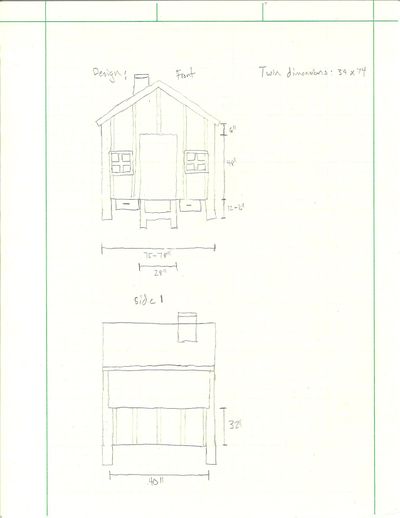 Design: Front
Twin dimensions: 39 x 74
6"
48"
75-78"
28"
side 1
32"
40"